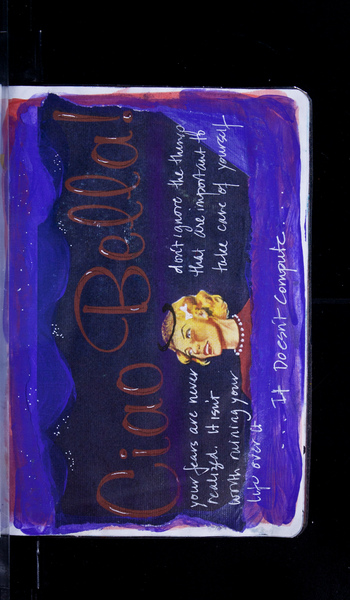 Ciao Bella!
your fears are never
realized. It isn't
worth ruining your
life over it
don't ignore the things
that are important to
take care of yourself
... It Doesn't Compute